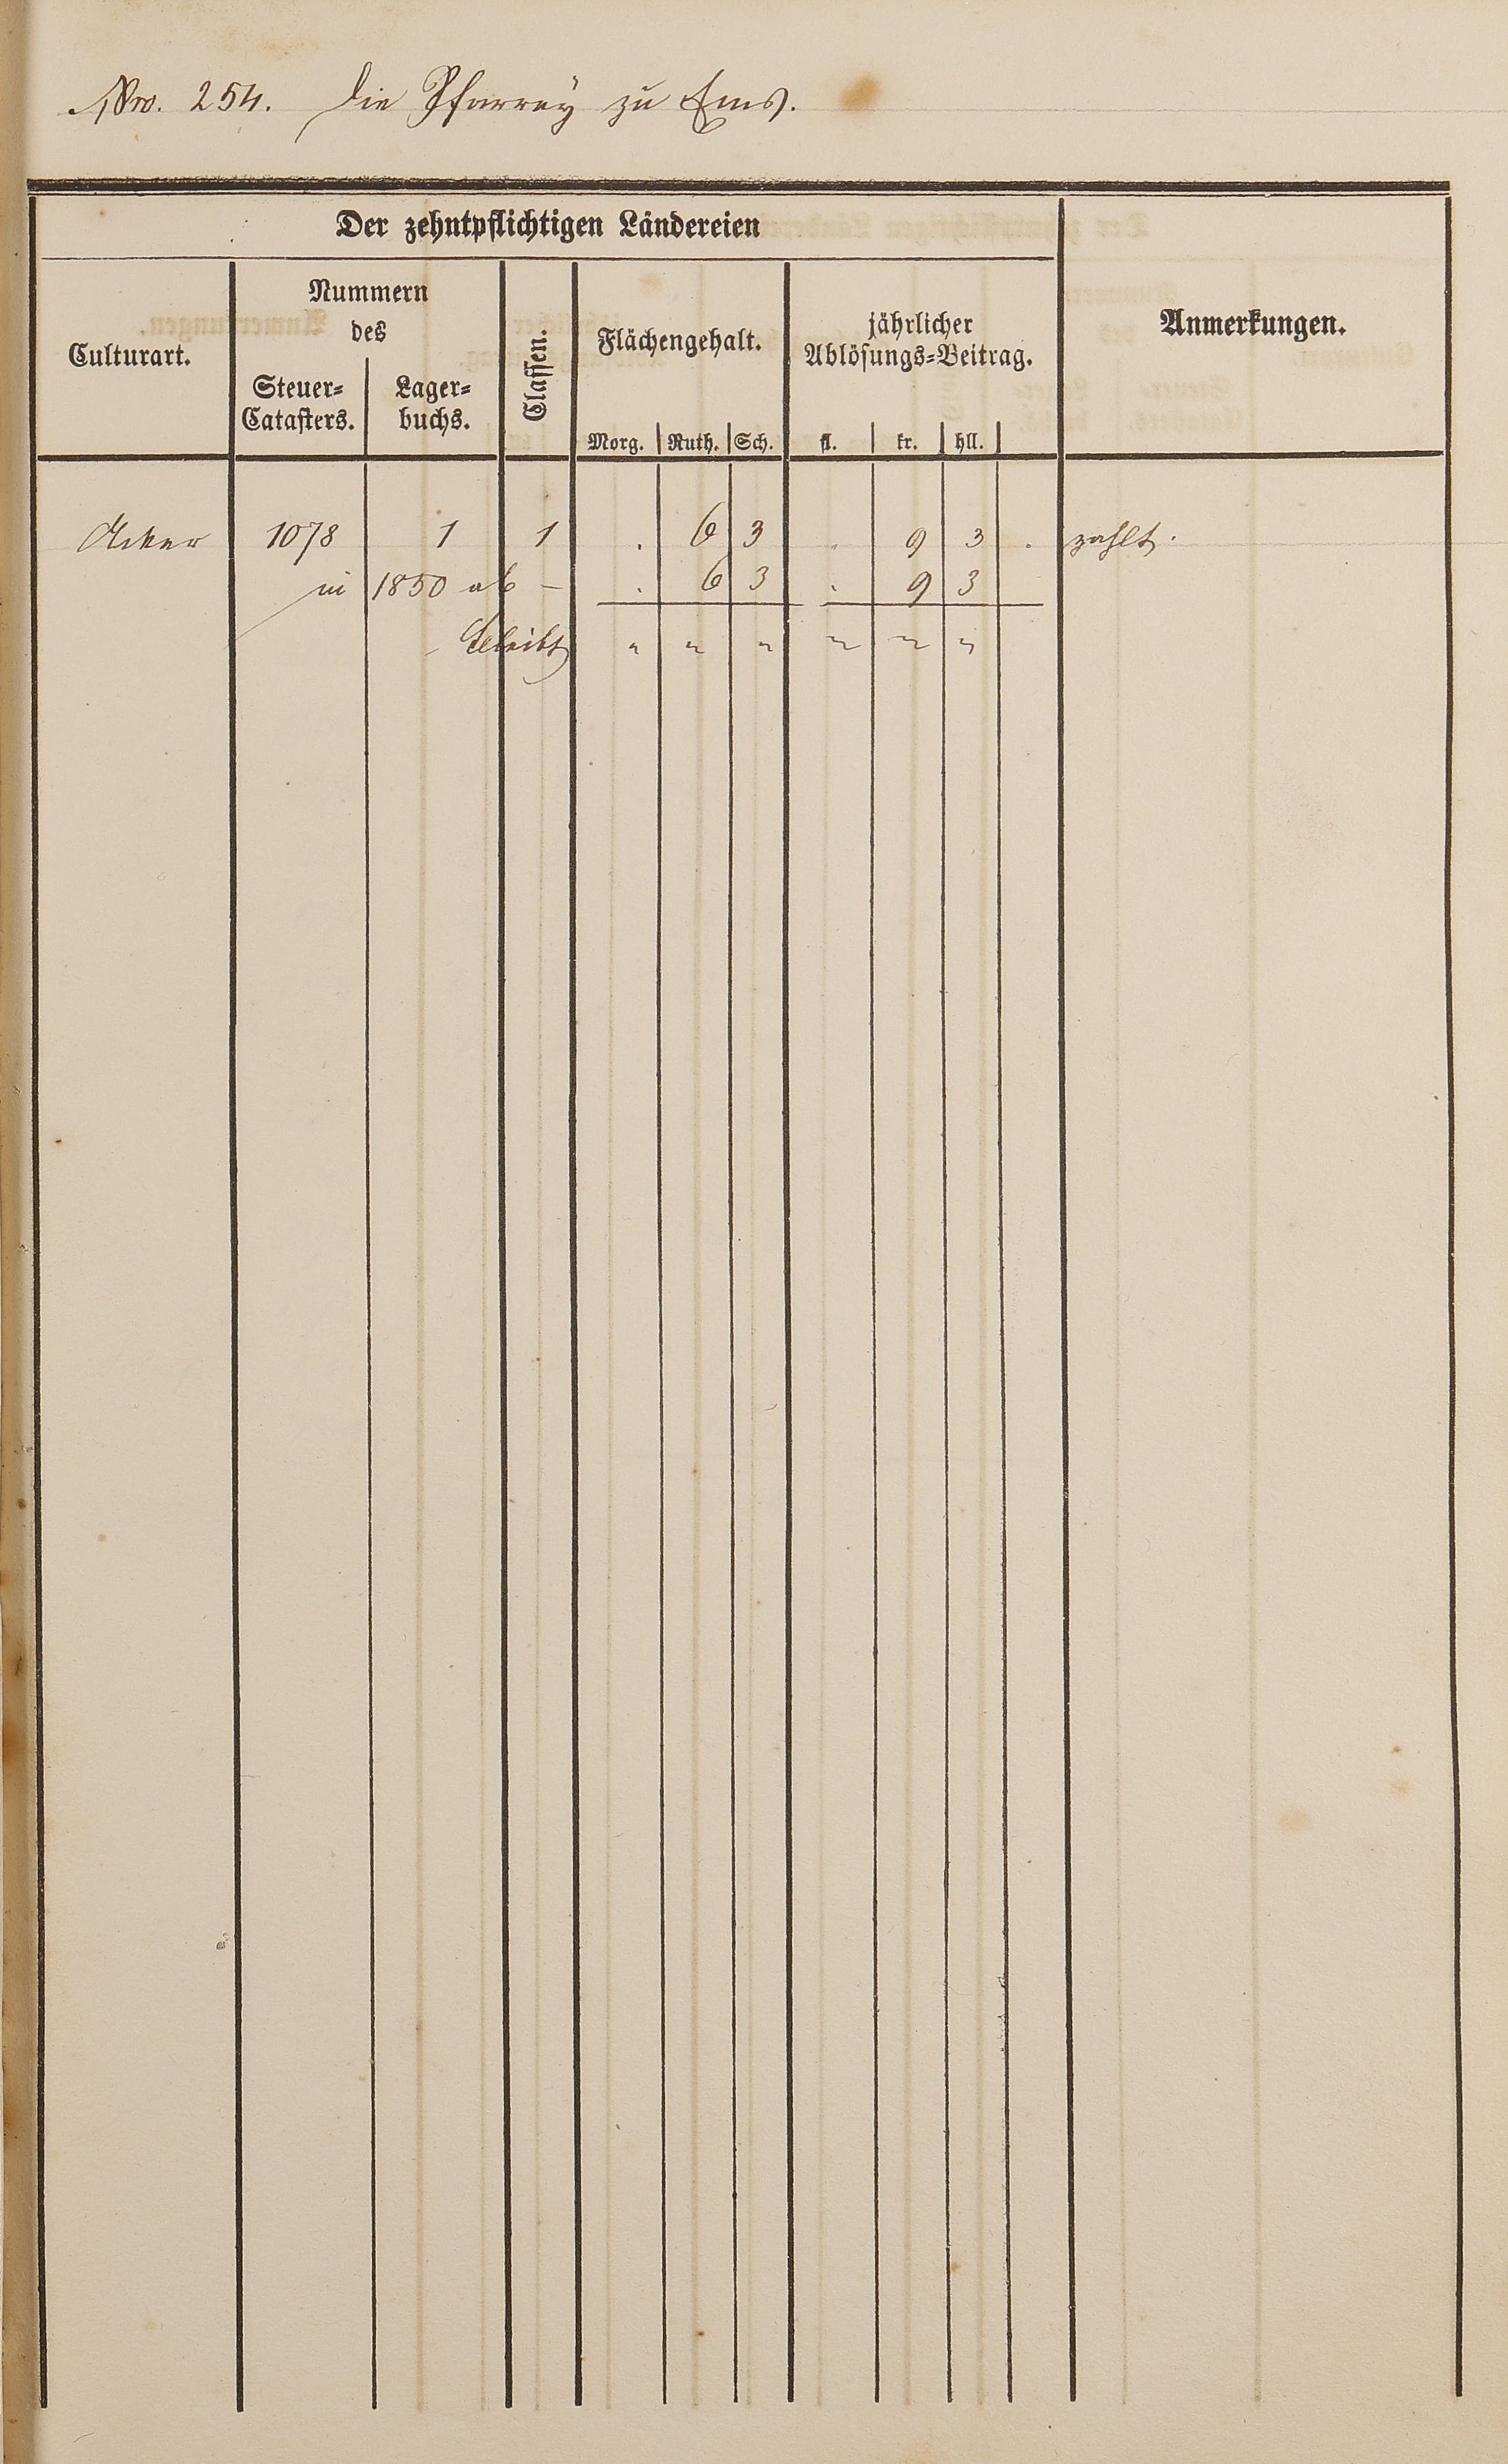 Nro. 254. Die Pfarrey zu Ems.
Der zehntpflichtigen Ländereien
Culturart.
Nummern
des
Steuer=
Catasters.
Lager=
buchs.
Classen.
Flächengehalt.
Morg. Ruth. Sch.
jährlicher
Ablösungs=Beitrag.
fl. kr. hll.
Anmerkungen.
Acker 1078 1 1 . 6 3 . 9 3 . zahlt.
in 1850 ab – . 6 3 . 9 3
bleibt " " " " " "